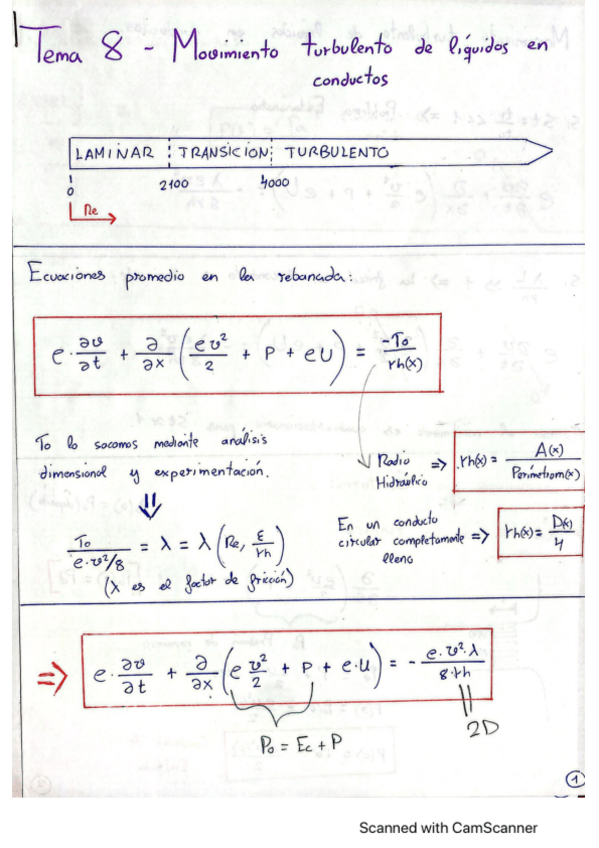 Tema 8 - Movimiento turbulento de líquidos en
conductos
LAMINAR TRANSICION TURBULENTO
0 2100 4000
Re
Ecuaciones promedio en la rebanada:
e·∂v/∂t + ∂/∂x (ev²/2 + P + eU) = -To/rh(x)
To lo sacamos mediante análisis
dimensional y experimentación.
Radio
Hidráulico
=> rh(x) = A(x)/Perímetrom(x)
To/e·v²/8 = λ = λ(Re, ε/rh)
(λ es el factor de fricción)
En un conducto
circular completamente =>
lleno
rh(x) = D(x)/4
=> e·∂v/∂t + ∂/∂x (e v²/2 + P + e·U) = - e·v²·λ/8·rh
Po = Ec + P
2D
1
Scanned with CamScanner